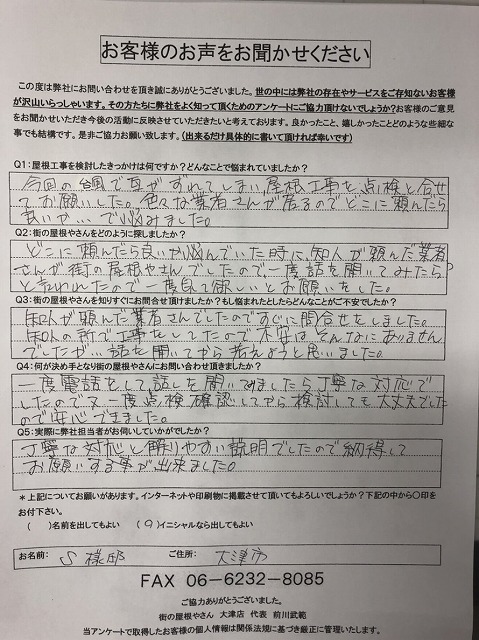 お客様のお声をお聞かせください
この度は弊社にお問い合わせを頂き誠にありがとうございました。世の中には弊社の存在やサービスをご存知ないお客様
が沢山いらっしゃいます。その方たちに弊社をよく知って頂くためのアンケートにご協力頂けないでしょうか?お客様のご意見
をお聞かせいただき今後の活動に反映させていただきたいと考えております。良かったこと、嬉しかったことどのような些細な
事でも結構です。是非ご協力お願い致します。(出来るだけ具体的に書いて頂ければ幸いです)
Q1:屋根工事を検討したきっかけは何ですか?どんなことで悩まれていましたか?
今回の台風で瓦がずれてしまい、屋根工事を点検と合せ
てお願いした。色々な業者さんが居るのでどこに頼んだら
良いか…で悩みました。
Q2:街の屋根やさんをどのように探しましたか?
どこに頼んだら良いか悩んでいた時に、知人が頼んだ業者
さんが街の屋根やさんでしたので、一度話を聞いてみたら?
と言われたので一度見て欲しいとお願いをした。
Q3:街の屋根やさんを知りすぐにお問合せ頂けましたか?もし悩まれたとしたらどんなことがご不安でしたか?
知人が頼んだ業者さんでしたのですぐに問合せをしました。
知人の所で工事をしてたので不安はそんなにありません
でしたが…話を聞いてから考えようと思いました。
Q4:何が決め手となり街の屋根やさんにお問い合わせ頂きましたか?
一度電話をして、話しを聞いてみましたら丁寧な対応で
したので又一度点検確認してから検討しても大丈夫でした
ので安心できました。
Q5:実際に弊社担当者がお伺いしていかがでしたか?
丁寧な対応と解りやすい説明でしたので納得して
お願いする事が出来ました。
*上記についてお願いがあります。インターネットや印刷物に掲載させて頂いてもよろしいでしょうか?下記の中から〇印を
お付下さい。
( )名前を出してもよい (○)イニシャルなら出してもよい
お名前: S様邸 ご住所: 大津市
FAX 06-6232-8085
ご協力ありがとうございました。
街の屋根やさん 大津店 代表 前川武範
当アンケートで取得したお客様の個人情報は関係法規に基づき厳正に管理いたします。